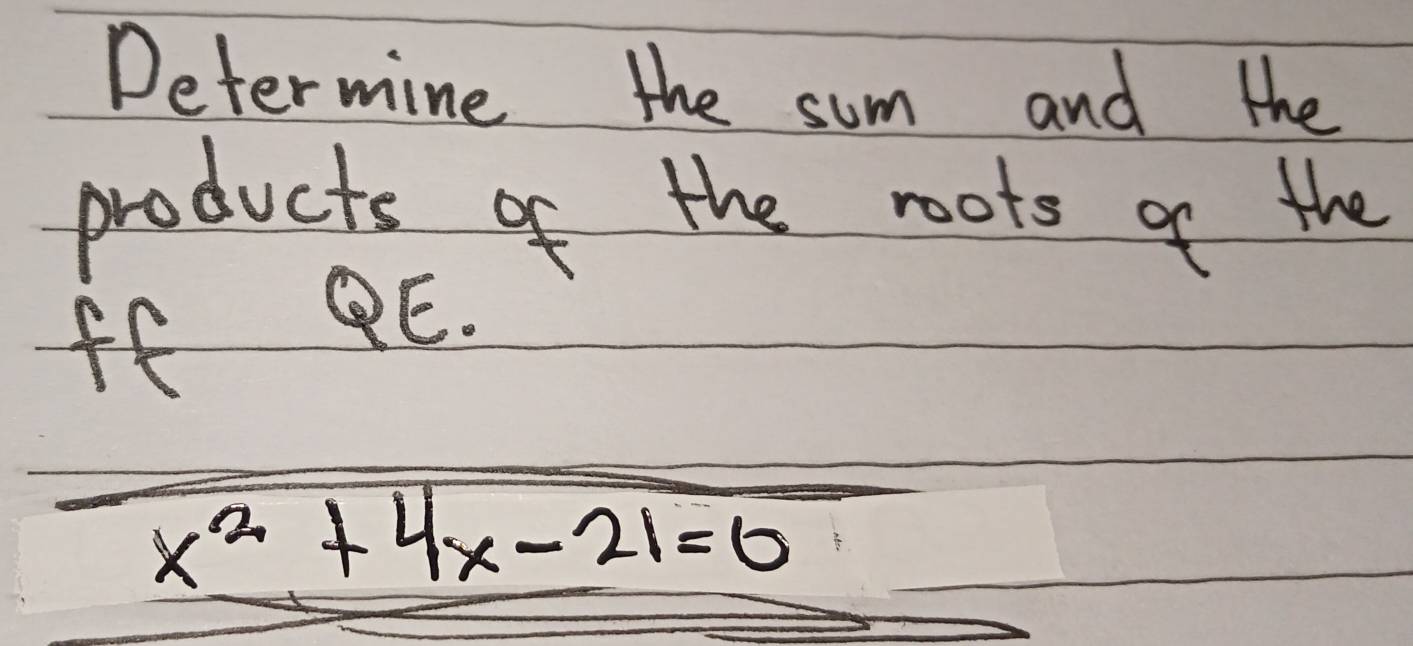 Determine the sum and the
products of the roots of the
ff QE.
x² + 4x - 21 = 0